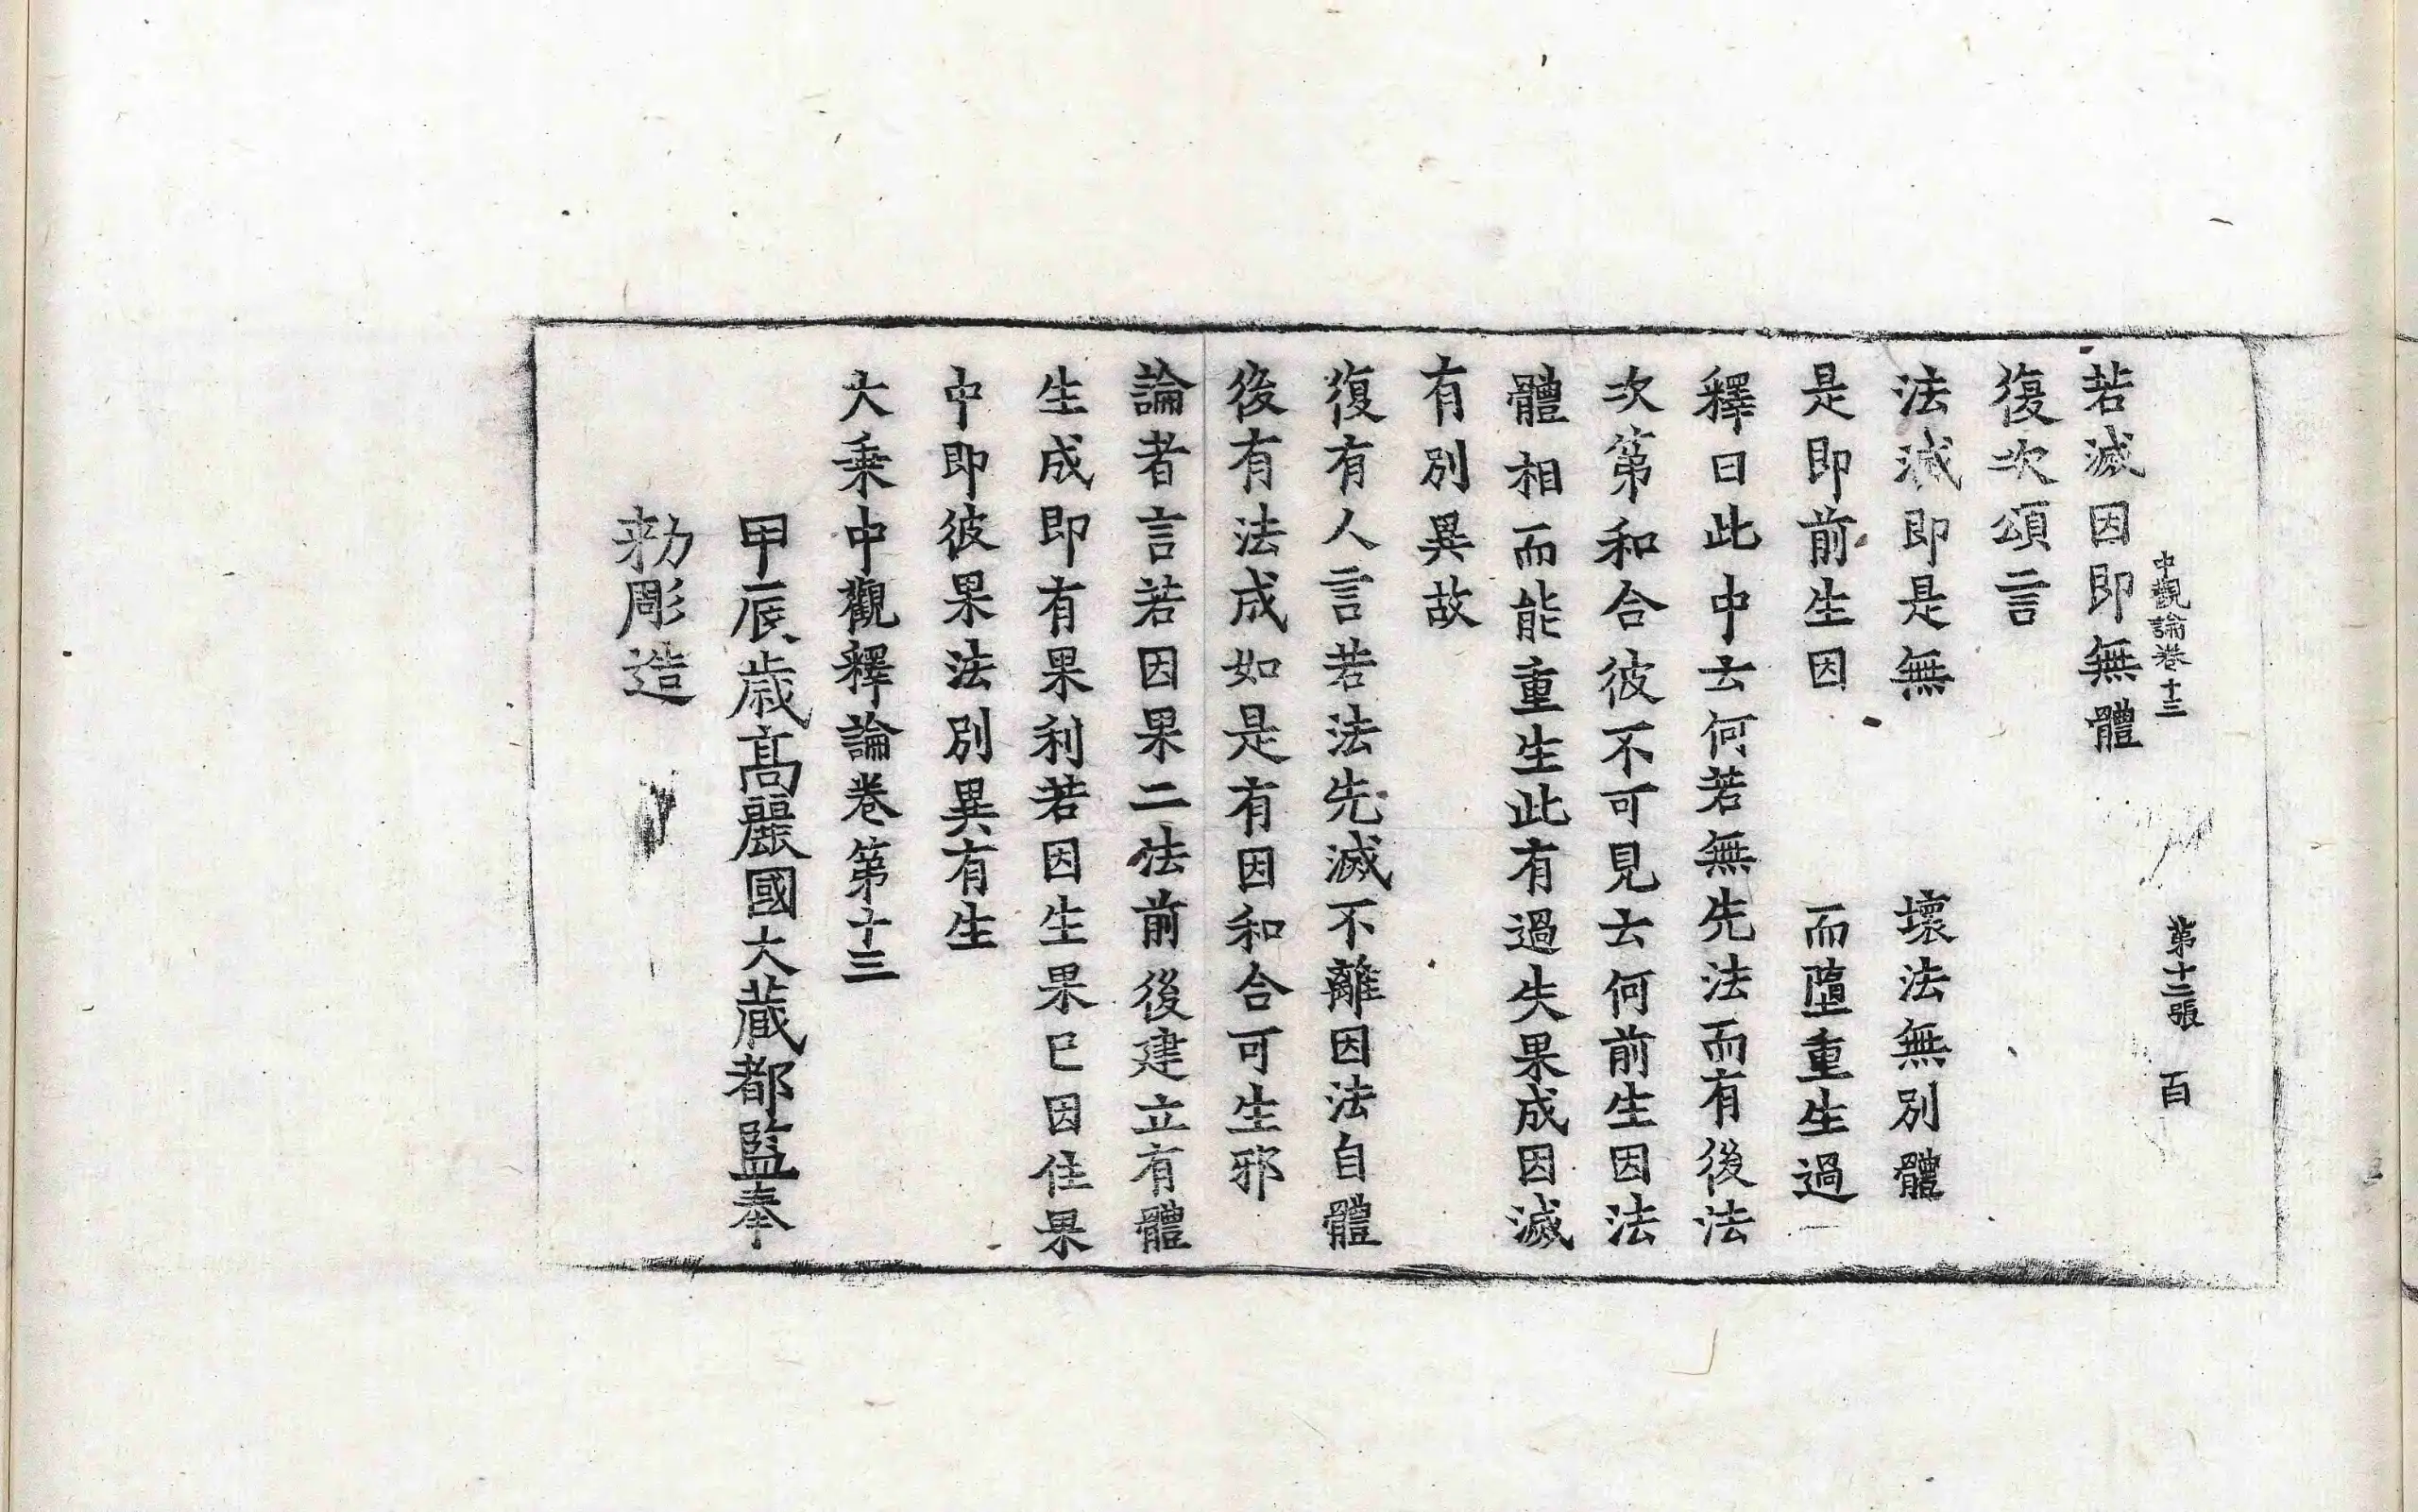 中觀論卷十三 第十二張 百
若滅因即無體
復次頌言
法滅即是無 壞法無別體
是即前生因 而墮重生過
釋曰此中云何若無先法而有後法
次第和合彼不可見云何前生因法
體相而能重生此有過失果成因滅
有別異故
復有人言若法先滅不離因法自體
後有法成如是有因和合可生邪
論者言若因果二法前後建立有體
生成即有果利若因生果已因住果
中即彼果法別異有生
大乗中觀釋論卷第十三
甲辰歳高麗國大蔵都監奉
勑彫造